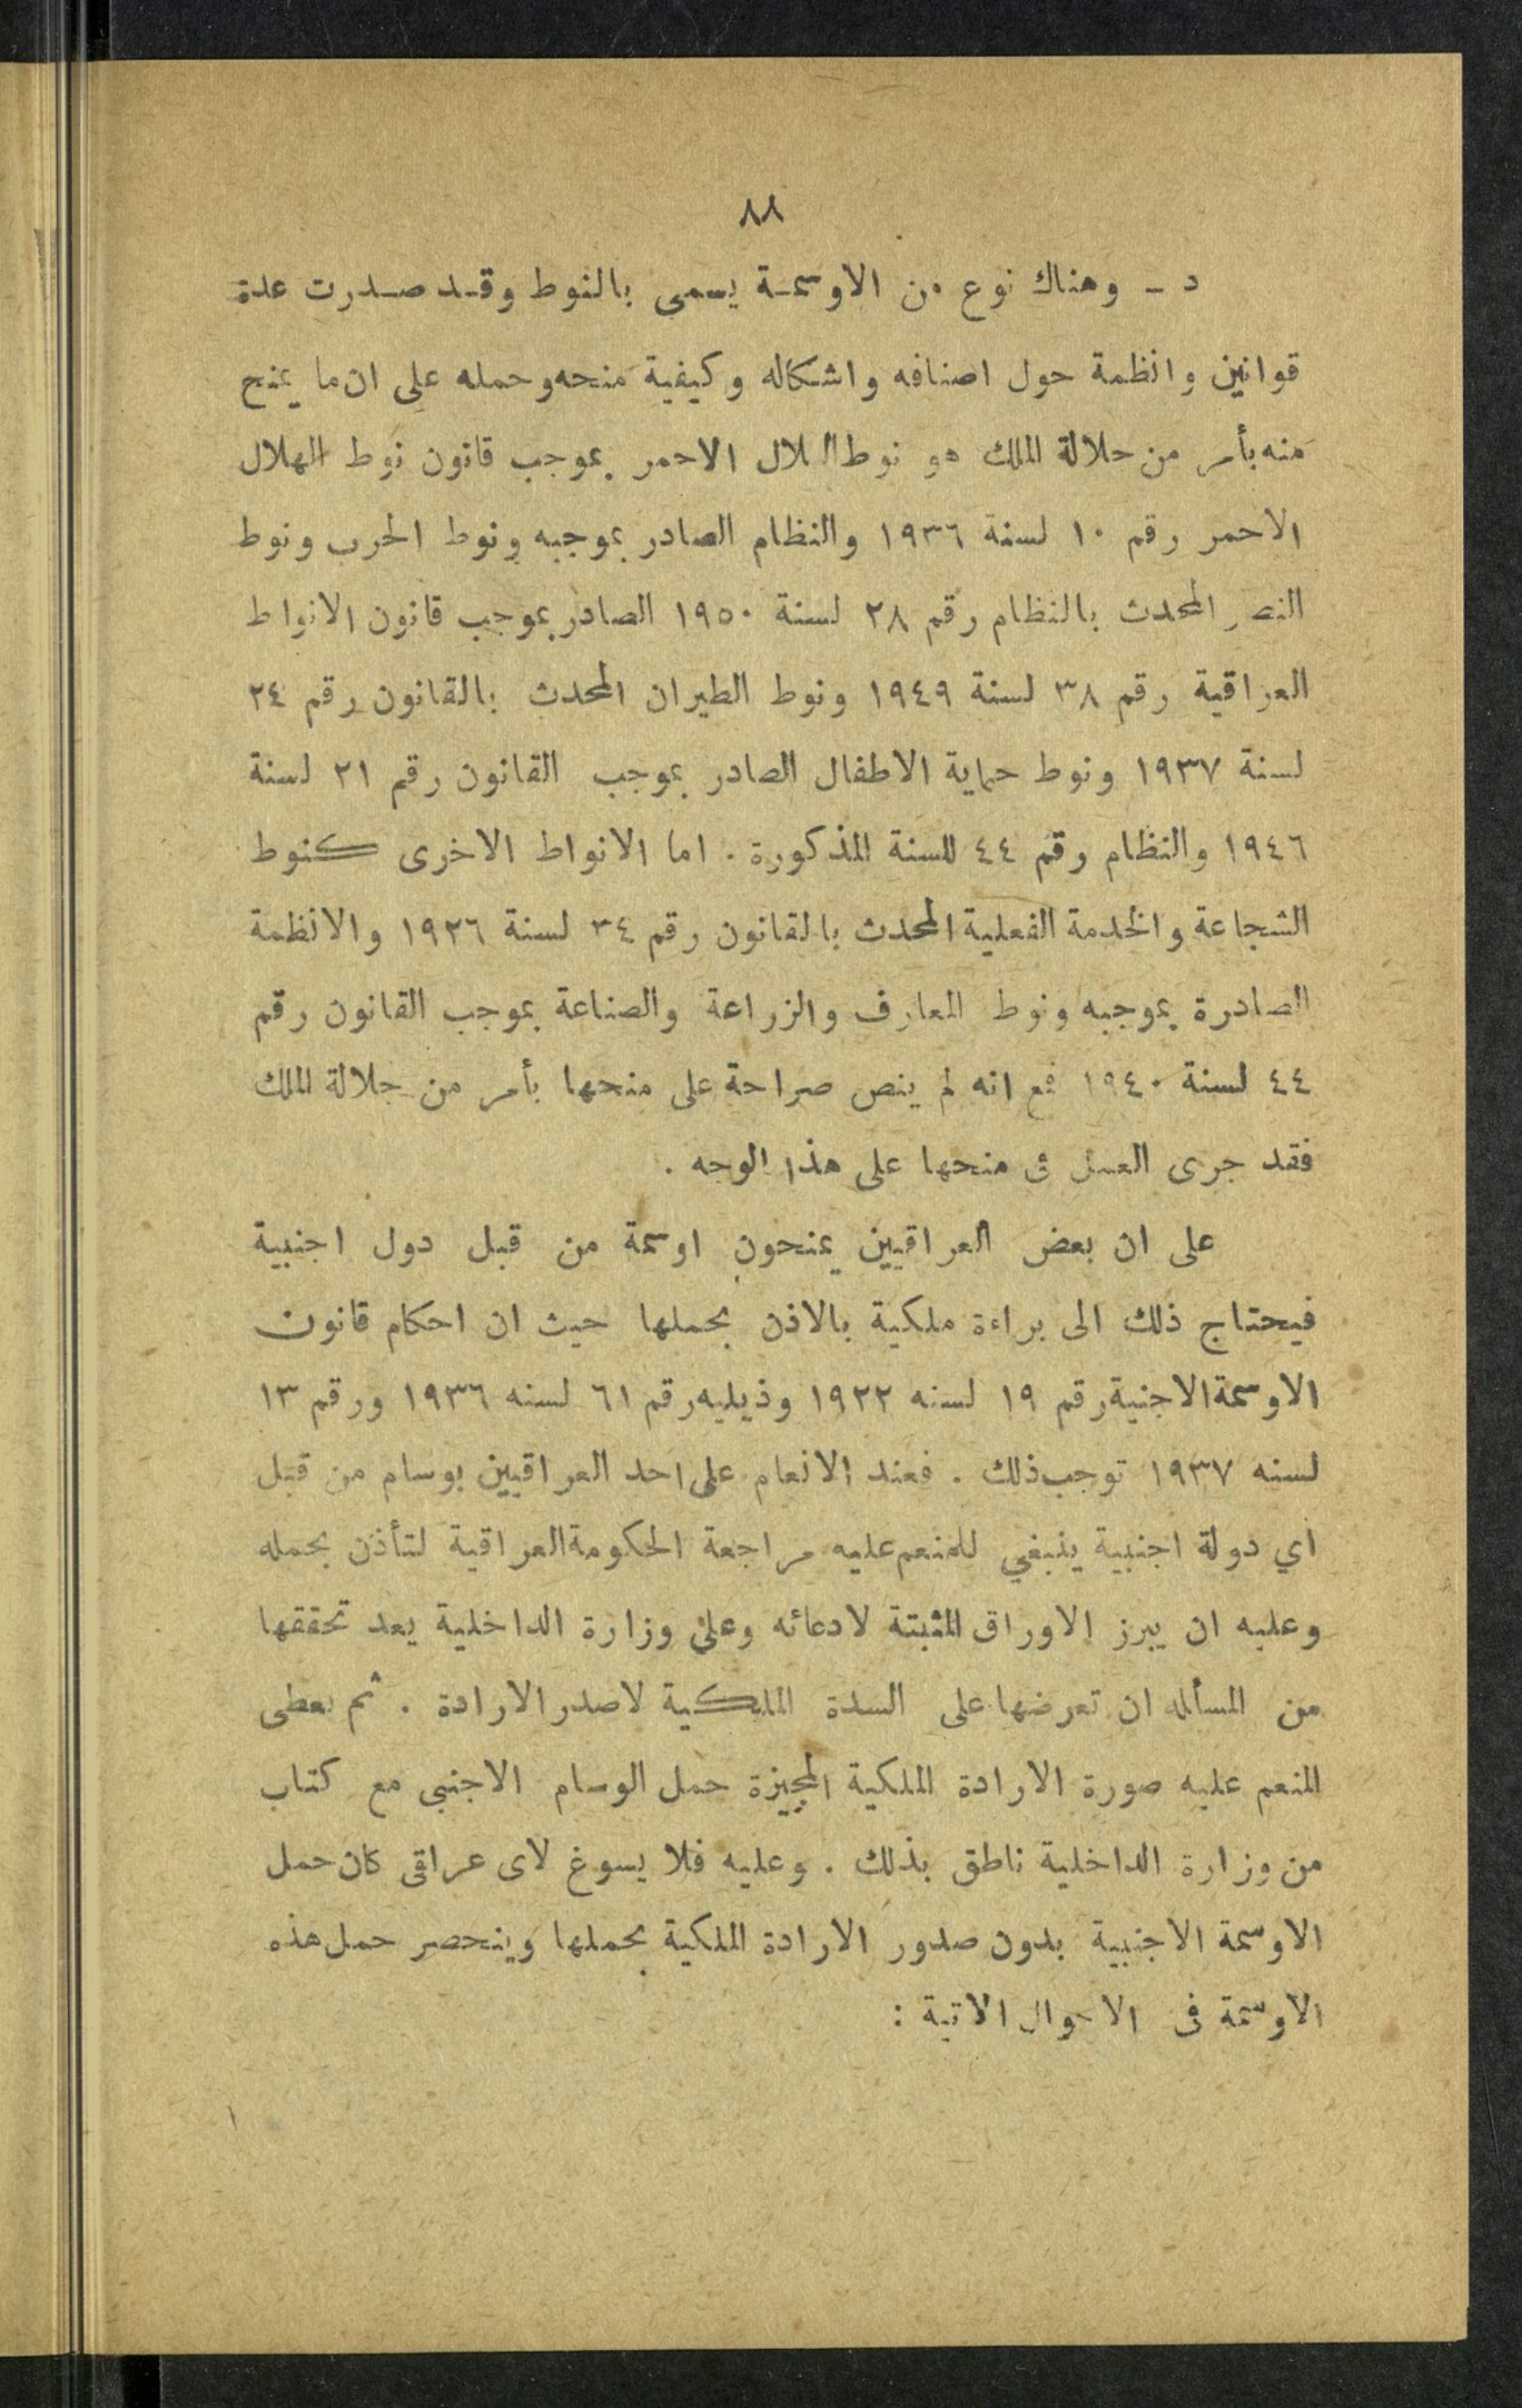 ٨٨
د ـ وهناك نوع من الاوسمـة يسمى بالنوط وقـد صـدرت عدة
قوانين وانظمة حول اصنافه واشكاله وكيفية منحه وحمله على ان ما يمنح
منه بأمر من جلالة الملك هو نوط الهلال الاحمر بموجب قانون نوط الهلال
الاحمر رقم ١٠ لسنة ١٩٣٦ والنظام الصادر بموجبه ونوط الحرب ونوط
النصر المحدث بالنظام رقم ٢٨ لسنة ١٩٥٠ الصادر بموجب قانون الانواط
العراقية رقم ٣٨ لسنة ١٩٤٩ ونوط الطيران المحدث بالقانون رقم ٢٤
لسنة ١٩٣٧ ونوط حماية الاطفال الصادر بموجب القانون رقم ٢١ لسنة
١٩٤٦ والنظام رقم ٤٤ للسنة المذكورة . اما الانواط الاخرى كنوط
الشجاعة والخدمة الفعلية المحدث بالقانون رقم ٣٤ لسنة ١٩٢٦ والانظمة
الصادرة بموجبه ونوط المعارف والزراعة والصناعة بموجب القانون رقم
٤٤ لسنة ١٩٤٠ فمع انه لم ينص صراحة على منحها بأمر من جلالة الملك
فقد جرى العمل فى منحها على هذا الوجه .
على ان بعض العراقيين يمنحون اوسمة من قبل دول اجنبية
فيحتاج ذلك الى براءة ملكية بالاذن بحملها حيث ان احكام قانون
الاوسمة الاجنبية رقم ١٩ لسنه ١٩٢٢ وذيليه رقم ٦١ لسنه ١٩٣٦ ورقم ١٣
لسنه ١٩٣٧ توجب ذلك . فعند الانعام على احد العراقيين بوسام من قبل
اي دولة اجنبية ينبغي للمنعم عليه مراجعة الحكومة العراقية لتأذن بحمله
وعليه ان يبرز الاوراق المثبتة لادعائه وعلى وزارة الداخلية يعد تحققها
من المسأله ان تعرضها على السدة الملكية لاصدر الارادة . ثم يعطى
المنعم عليه صورة الارادة الملكية المجيزة حمل الوسام الاجنبى مع كتاب
من وزارة الداخلية ناطق بذلك . وعليه فلا يسوغ لاى عراقى كان حمل
الاوسمة الاجنبية بدون صدور الارادة الملكية بحملها وينحصر حمل هذه
الاوسمة فى الاحوال الاتية :